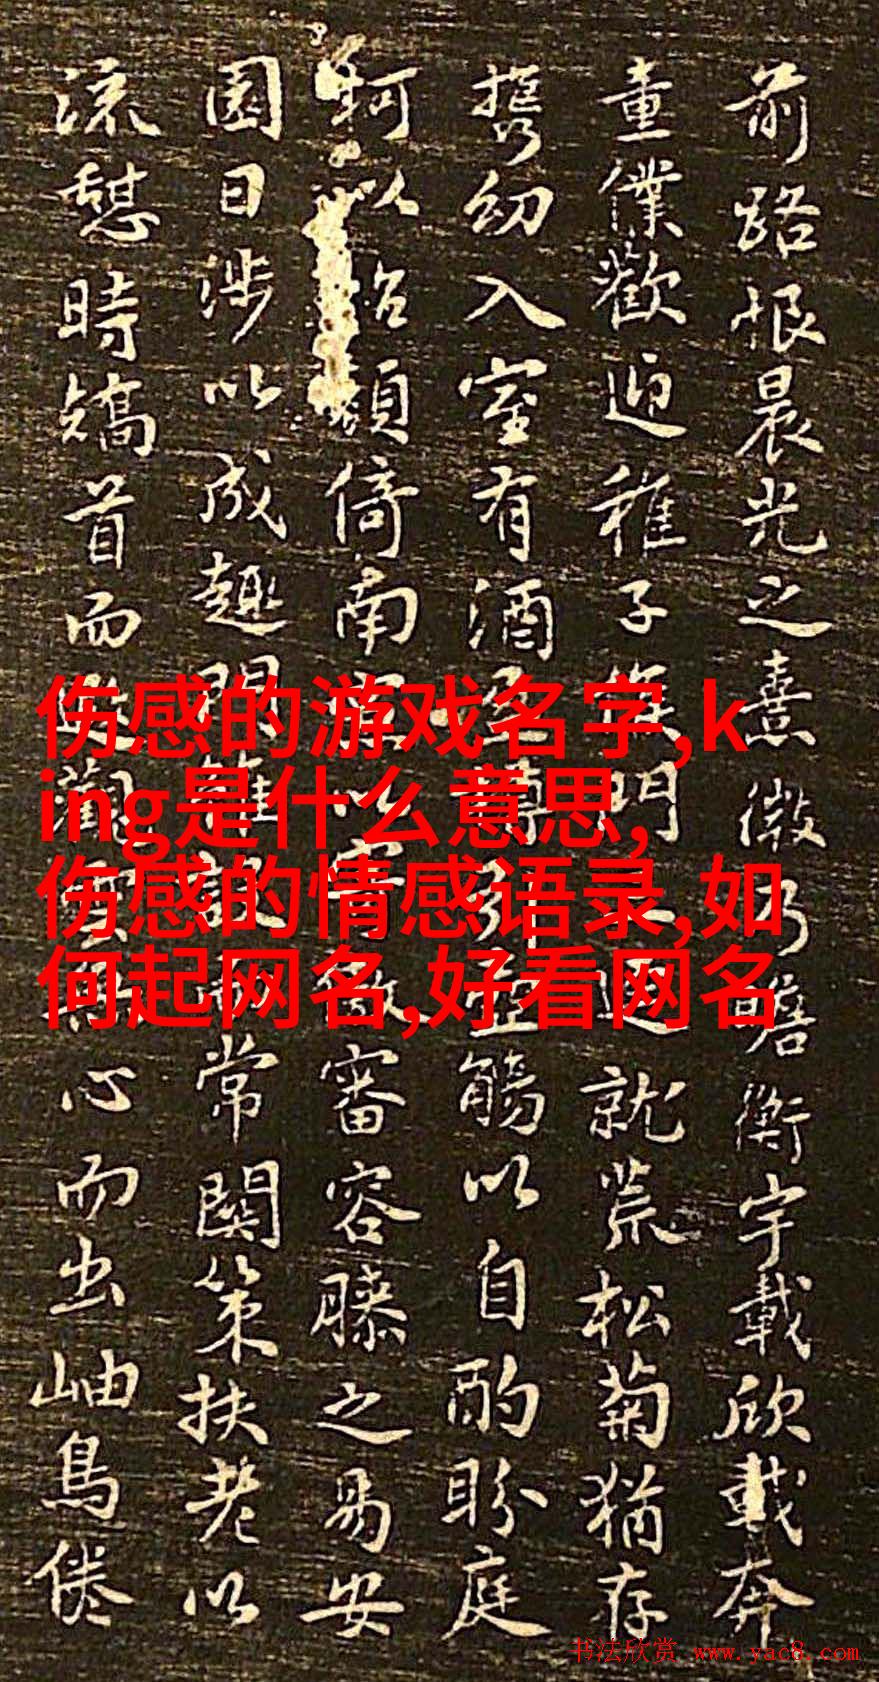 前路恨晨光之熹微乃瞻衡宇載欣載奔
童僕歡迎稚子候門三逕就荒松菊猶存
攜幼入室有酒盈罇引壺觴以自酌盼庭
柯以怡顏倚南窓以寄傲審容膝之易安
園日涉以成趣門雖設而常關策扶老以
流憩時矯首而遐觀雲無心而出岫鳥倦
伤感的游戏名字,k
ing是什么意思,
伤感的情感语录,如
何起网名,好看网名
书法欣赏 www.yac8.com